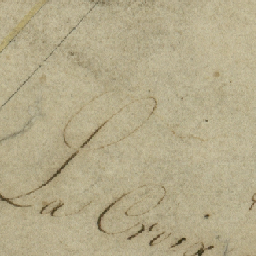 La Croix